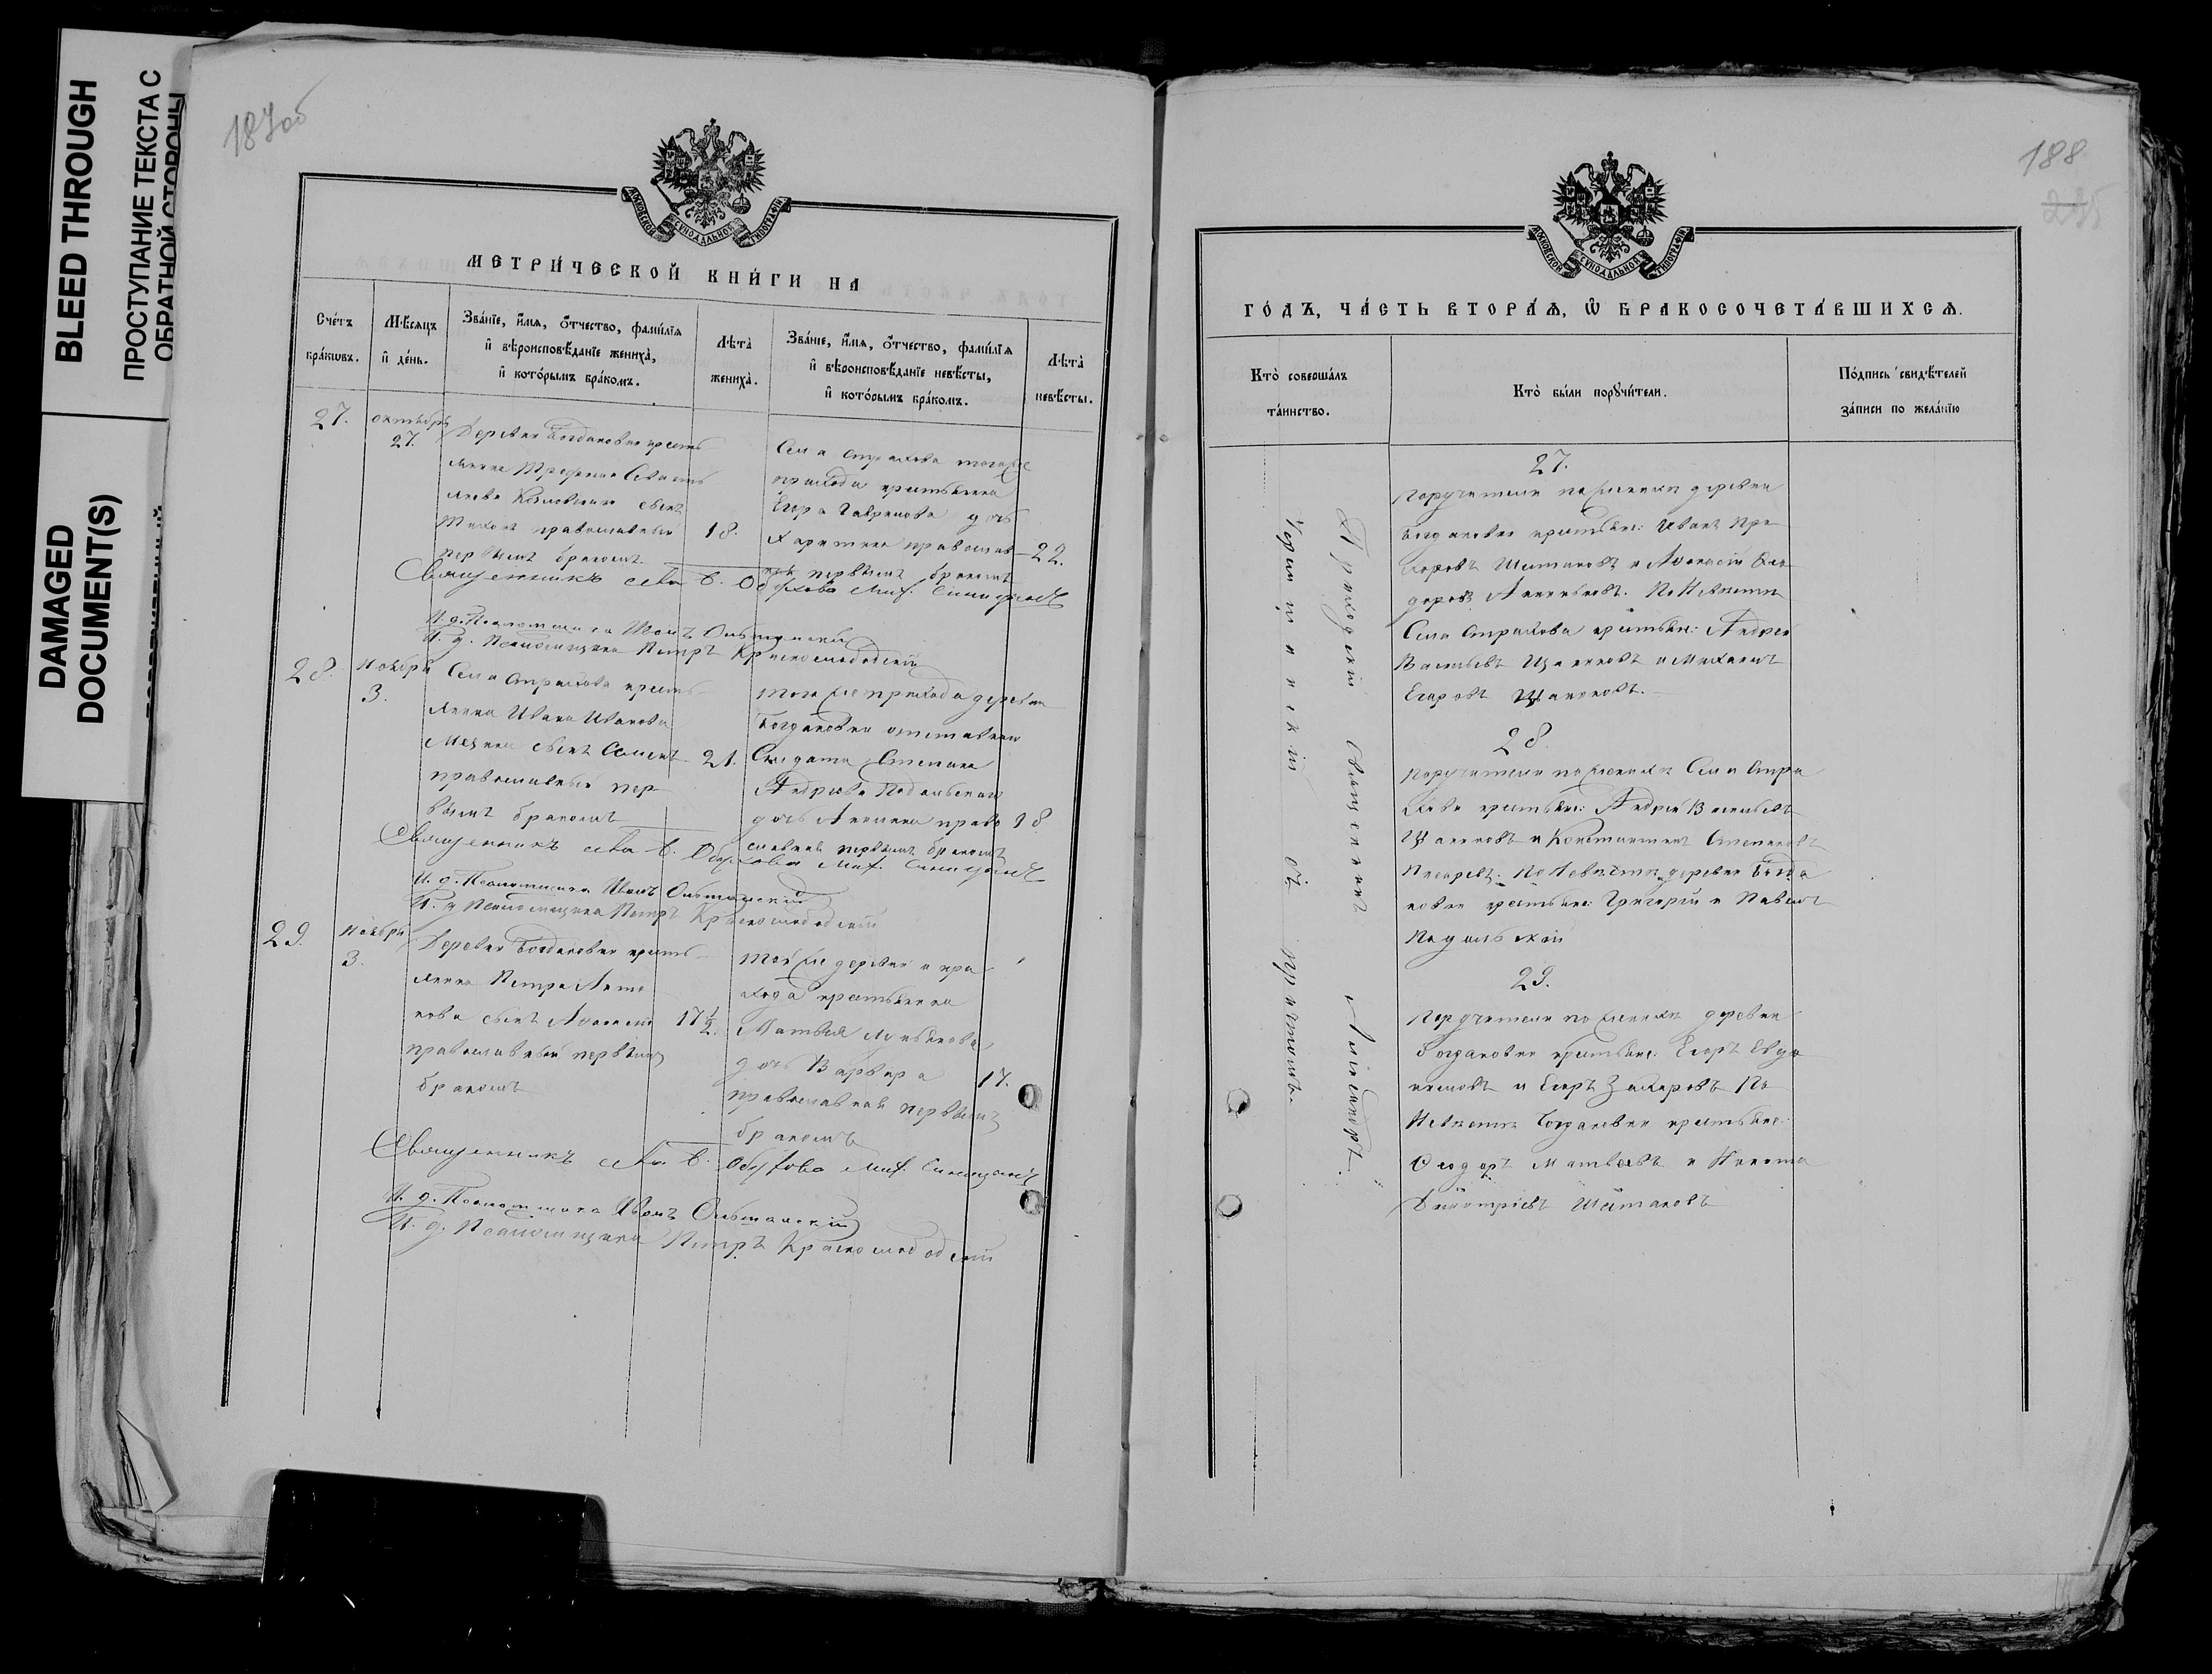 BLEED THROUGH
ПРОСТУПАНИЕ ТЕКСТА С
ОБРАТНОЙ СТОРОНЫ
DAMAGED
DOCUMENT(S)
187об
МОСКОВСКОЙ СѴНОДАЛЬНОЙ ТИПОГРАФІИ
МЕТРИ́ЧЕСКОЙ КНИ́ГИ НА
Сче́тъ бра́кѡвъ.
Мѣ́сяцъ и҆ де́нь.
Зва́нїе, и҆́мѧ, ѻ҆́тчество, фами́лїѧ
и҆ вѣроисповѣ́данїе жениха̀,
и҆ кото́рымъ бра́комъ.
Лѣ́та жениха̀.
Зва́нїе, и҆́мѧ, ѻ҆́тчество, фами́лїѧ
и҆ вѣроисповѣ́данїе невѣ́сты,
и҆ кото́рымъ бра́комъ.
Лѣ́та невѣ́сты.
27.
Октября
27.
Деревни Богдановки кресть
янина Трофима Севасть
янова сынъ
Тихонъ православный
первымъ бракомъ
18.
Села Страхова тогоже
прихода крестьянина
Егора Гаврилова дочь
Харитина православ
ная первымъ бракомъ
22.
Священникъ села Обухова Мих. Синицынъ
И. д. Псаломщика Иванъ Ольшанскій
И. д. Псаломщика Петръ Краснослободскій
28.
Ноября
3.
Села Страхова кресть
янина Ивана Иванова
сынъ Семенъ
православный пер
вымъ бракомъ
21.
Того же прихода деревни
Богдановки отставнаго
Солдата Степана
Андреева Подольскаго
дочь Акилина право
славная первымъ бракомъ
18
Священникъ села Обухова Мих. Синицынъ
И. д. Псаломщика Иванъ Ольшанскій
И. д. Псаломщика Петръ Краснослободскій
29.
Ноября
3.
Деревни Богдановки кресть
янина Петра Анто
нова сынъ Афанасій
православный первымъ
бракомъ
17 1/2.
Той же деревни и при
хода крестьянина
Матвея Лукьянова
дочь Варвара
православная первымъ
бракомъ
17.
Священникъ села Обухова Мих. Синицынъ
И. д. Псаломщика Иванъ Ольшанскій
И. д. Псаломщика Петръ Краснослободскій
188
МОСКОВСКОЙ СѴНОДАЛЬНОЙ ТИПОГРАФІИ
ГО́ДЪ, ЧА́СТЬ ВТОРА́Ѧ, Ѽ БРАКОСОЧЕТА́ВШИХСѦ.
Кто̀ соверша́лъ
та́инство.
Кто̀ бы́ли порꙋчи́тели.
По́дпись свидѣ́телей
за́писи по жела́нїю
Приходскій Священникъ Александръ
съ причтомъ.
27.
Поручители по женихѣ деревни
Богдановки крестьяне: Иванъ Про
хоровъ Шаталовъ и Афанасій Ѳео
доровъ Аникѣевъ. По Невѣстѣ
Села Страхова крестьяне: Андрей
Васильевъ Цаплиновъ и Михаилъ
Егоровъ
28.
Поручители по женихѣ Села Стра
хова крестьяне: Андрей Васильевъ
и Константинъ Степановъ
Писаревъ. По Невѣстѣ деревни Богда
новки крестьяне: Григорій и Павелъ
Подольскій
29.
Поручители по женихѣ деревни
Богдановки крестьяне: Егоръ Евдо
кимовъ и Егоръ Захаровъ По
Невѣстѣ Богдановки крестьяне:
Ѳеодоръ Матвеевъ и Никита
Димитріевъ Шаталовъ